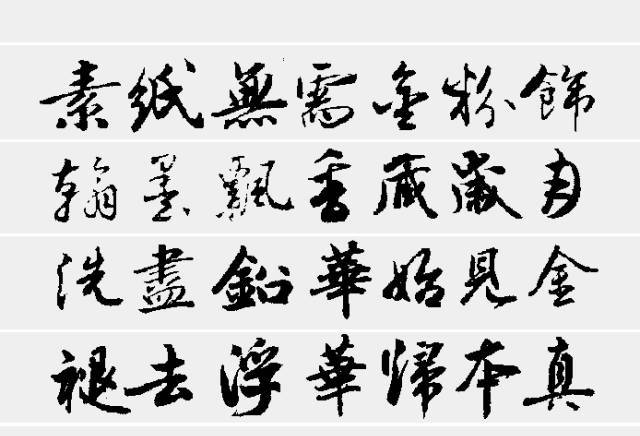 素紙無需金粉飾
翰墨飄香藏歲月
洗盡鉛華始見金
褪去浮華歸本真